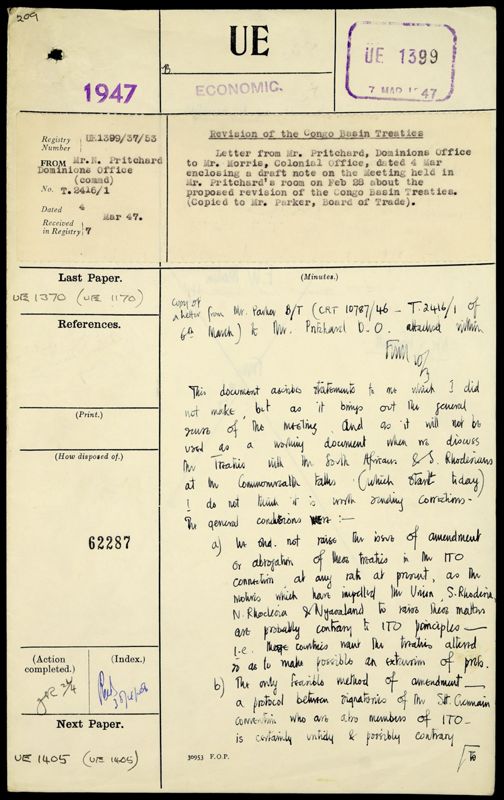 209
UE
B
1947
ECONOMIC.
UE 1399
7 MAR 1947
Registry Number } UE1399/37/53
FROM Mr. N. Pritchard
Dominions Office
(commd)
No. T.2416/1
Dated 4 Mar 47.
Received in Registry } 7
Revision of the Congo Basin Treaties
Letter from Mr. Pritchard, Dominions Office
to Mr. Morris, Colonial Office, dated 4 Mar
enclosing a draft note on the Meeting held in
Mr. Pritchard's room on Feb 28 about the
proposed revision of the Congo Basin Treaties.
(Copied to Mr. Parker, Board of Trade).
Last Paper.
UE 1370 (UE 1170)
References.
(Print.)
(How disposed of.)
62287
(Action completed.)
(Index.)
Next Paper.
UE 1405 (UE 1405)
(Minutes.)
Copy of
a letter from Mr. Parker B/T (CRT 10787/46 - T.2416/1 of
6th March) to Mr. Pritchard D.O. attached within
This document ascribes statements to me which I did
not make, but as it brings out the general
sense of the meeting, and as it will not be
used as a working document when we discuss
the Treaties with the South Africans & S. Rhodesians
at the Commonwealth talks (which start today)
I do not think it is worth sending corrections.
The general conclusions were :—
a) We shd. not raise the issue of amendment
or abrogation of these treaties in the ITO
connection, at any rate at present, as the
motives which have impelled the Union, S. Rhodesia,
N. Rhodesia & Nyasaland to raise these matters
are probably contrary to ITO principles —
i.e. these countries want the treaties altered
so as to make possible an extension of prefs.
b) The only feasible method of amendment —
a protocol between signatories of the St. Germain
convention who are also members of ITO —
is certainly untidy & possibly contrary
to
30953 F.O.P.